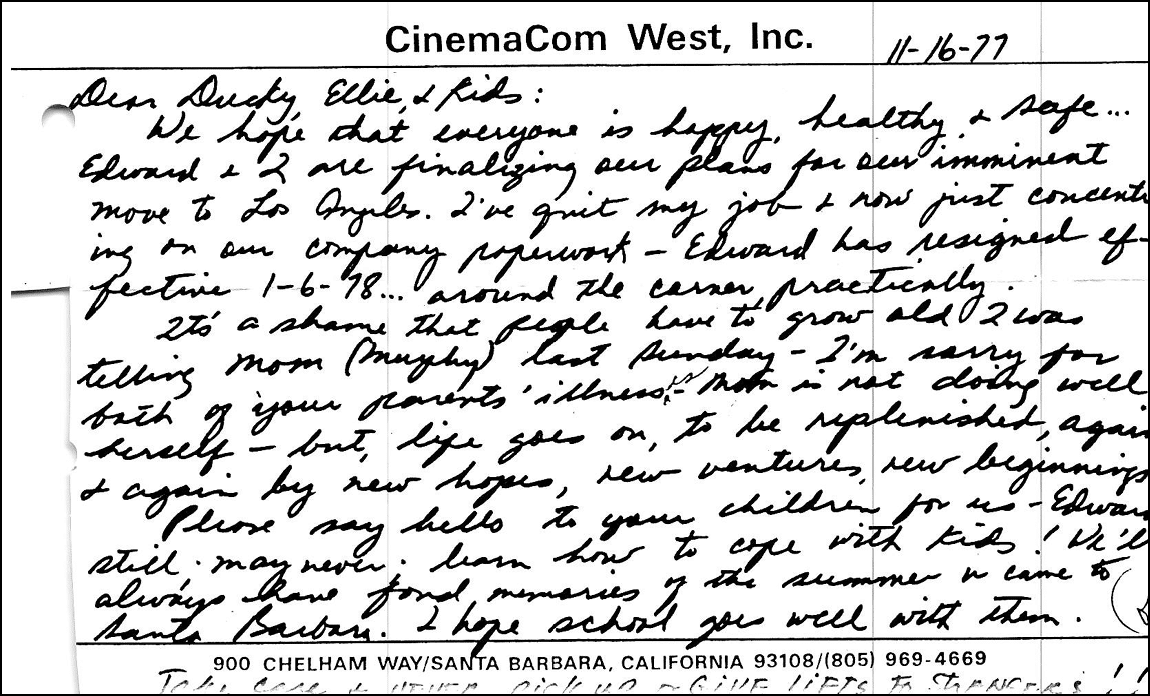 CinemaCom West, Inc.
11-16-77
Dear Ducky, Ellie, & Kids:
We hope that everyone is happy, healthy, & safe...
Edward & I are finalizing our plans for our imminent
move to Los Angeles. I've quit my job & now just concentr
ing on our company paperwork – Edward has resigned ef-
fective 1-6-78... around the corner, practically.
It's a shame that people have to grow old I was
telling Mom (Murphy) last Sunday – I'm sorry for
both of your parents' illness – Mom is not doing well
herself – but, life goes on, to be replenished, again
& again by new hopes, new ventures, new beginnings
Please say hello to your children for us – Edwar
still · may never · learn how to cope with kids! We'll
always have fond memories of the summer u came to
Santa Barbara. I hope school goes well with them.
900 CHELHAM WAY/SANTA BARBARA, CALIFORNIA 93108/(805) 969-4669
Take care & NEVER PICK UP or GIVE LIFTS to STRANGERS!!